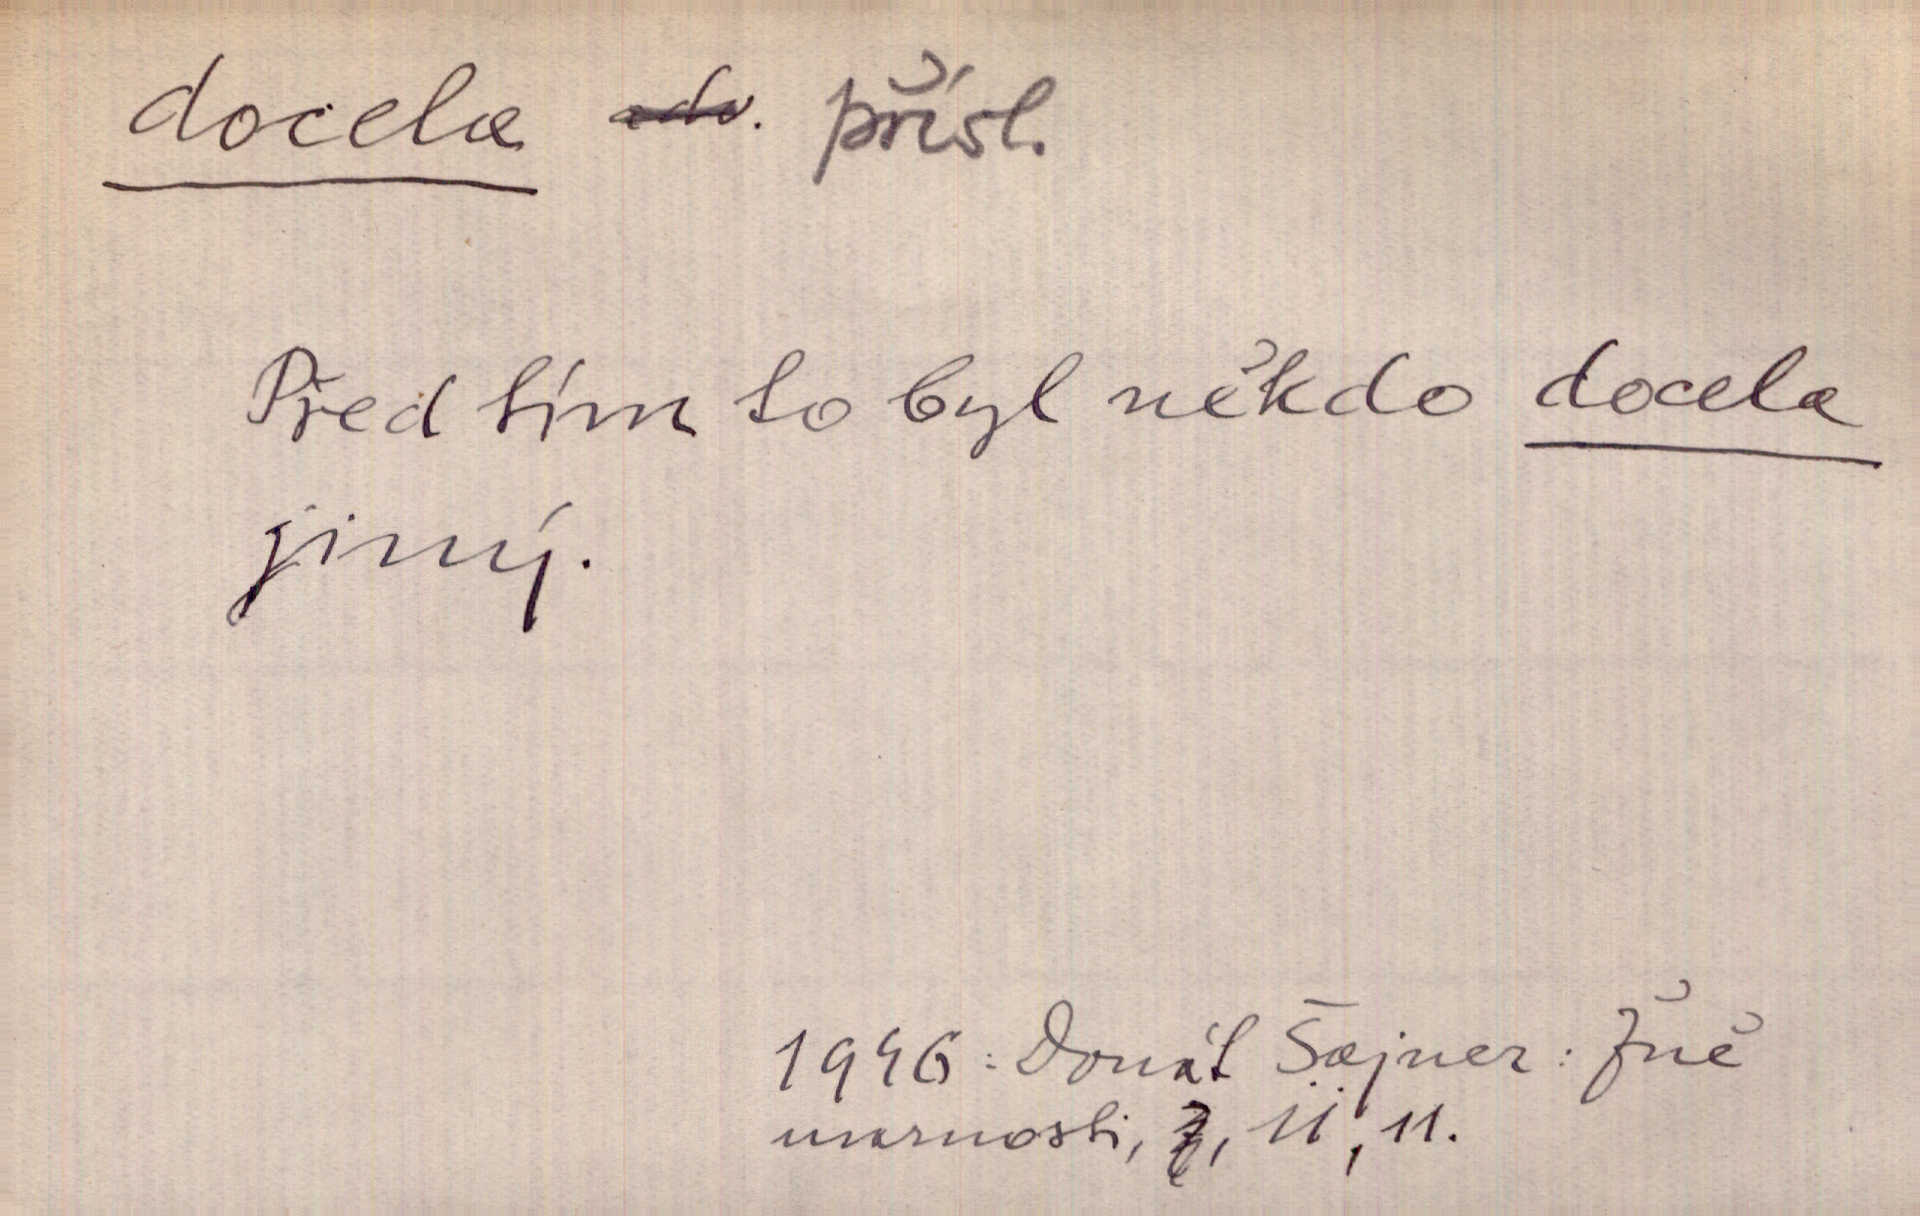 docela adv. přísl.
Před tím to byl někdo docela
jiný.
1946: Donát Šajner: Žně
marnosti, II, 11.